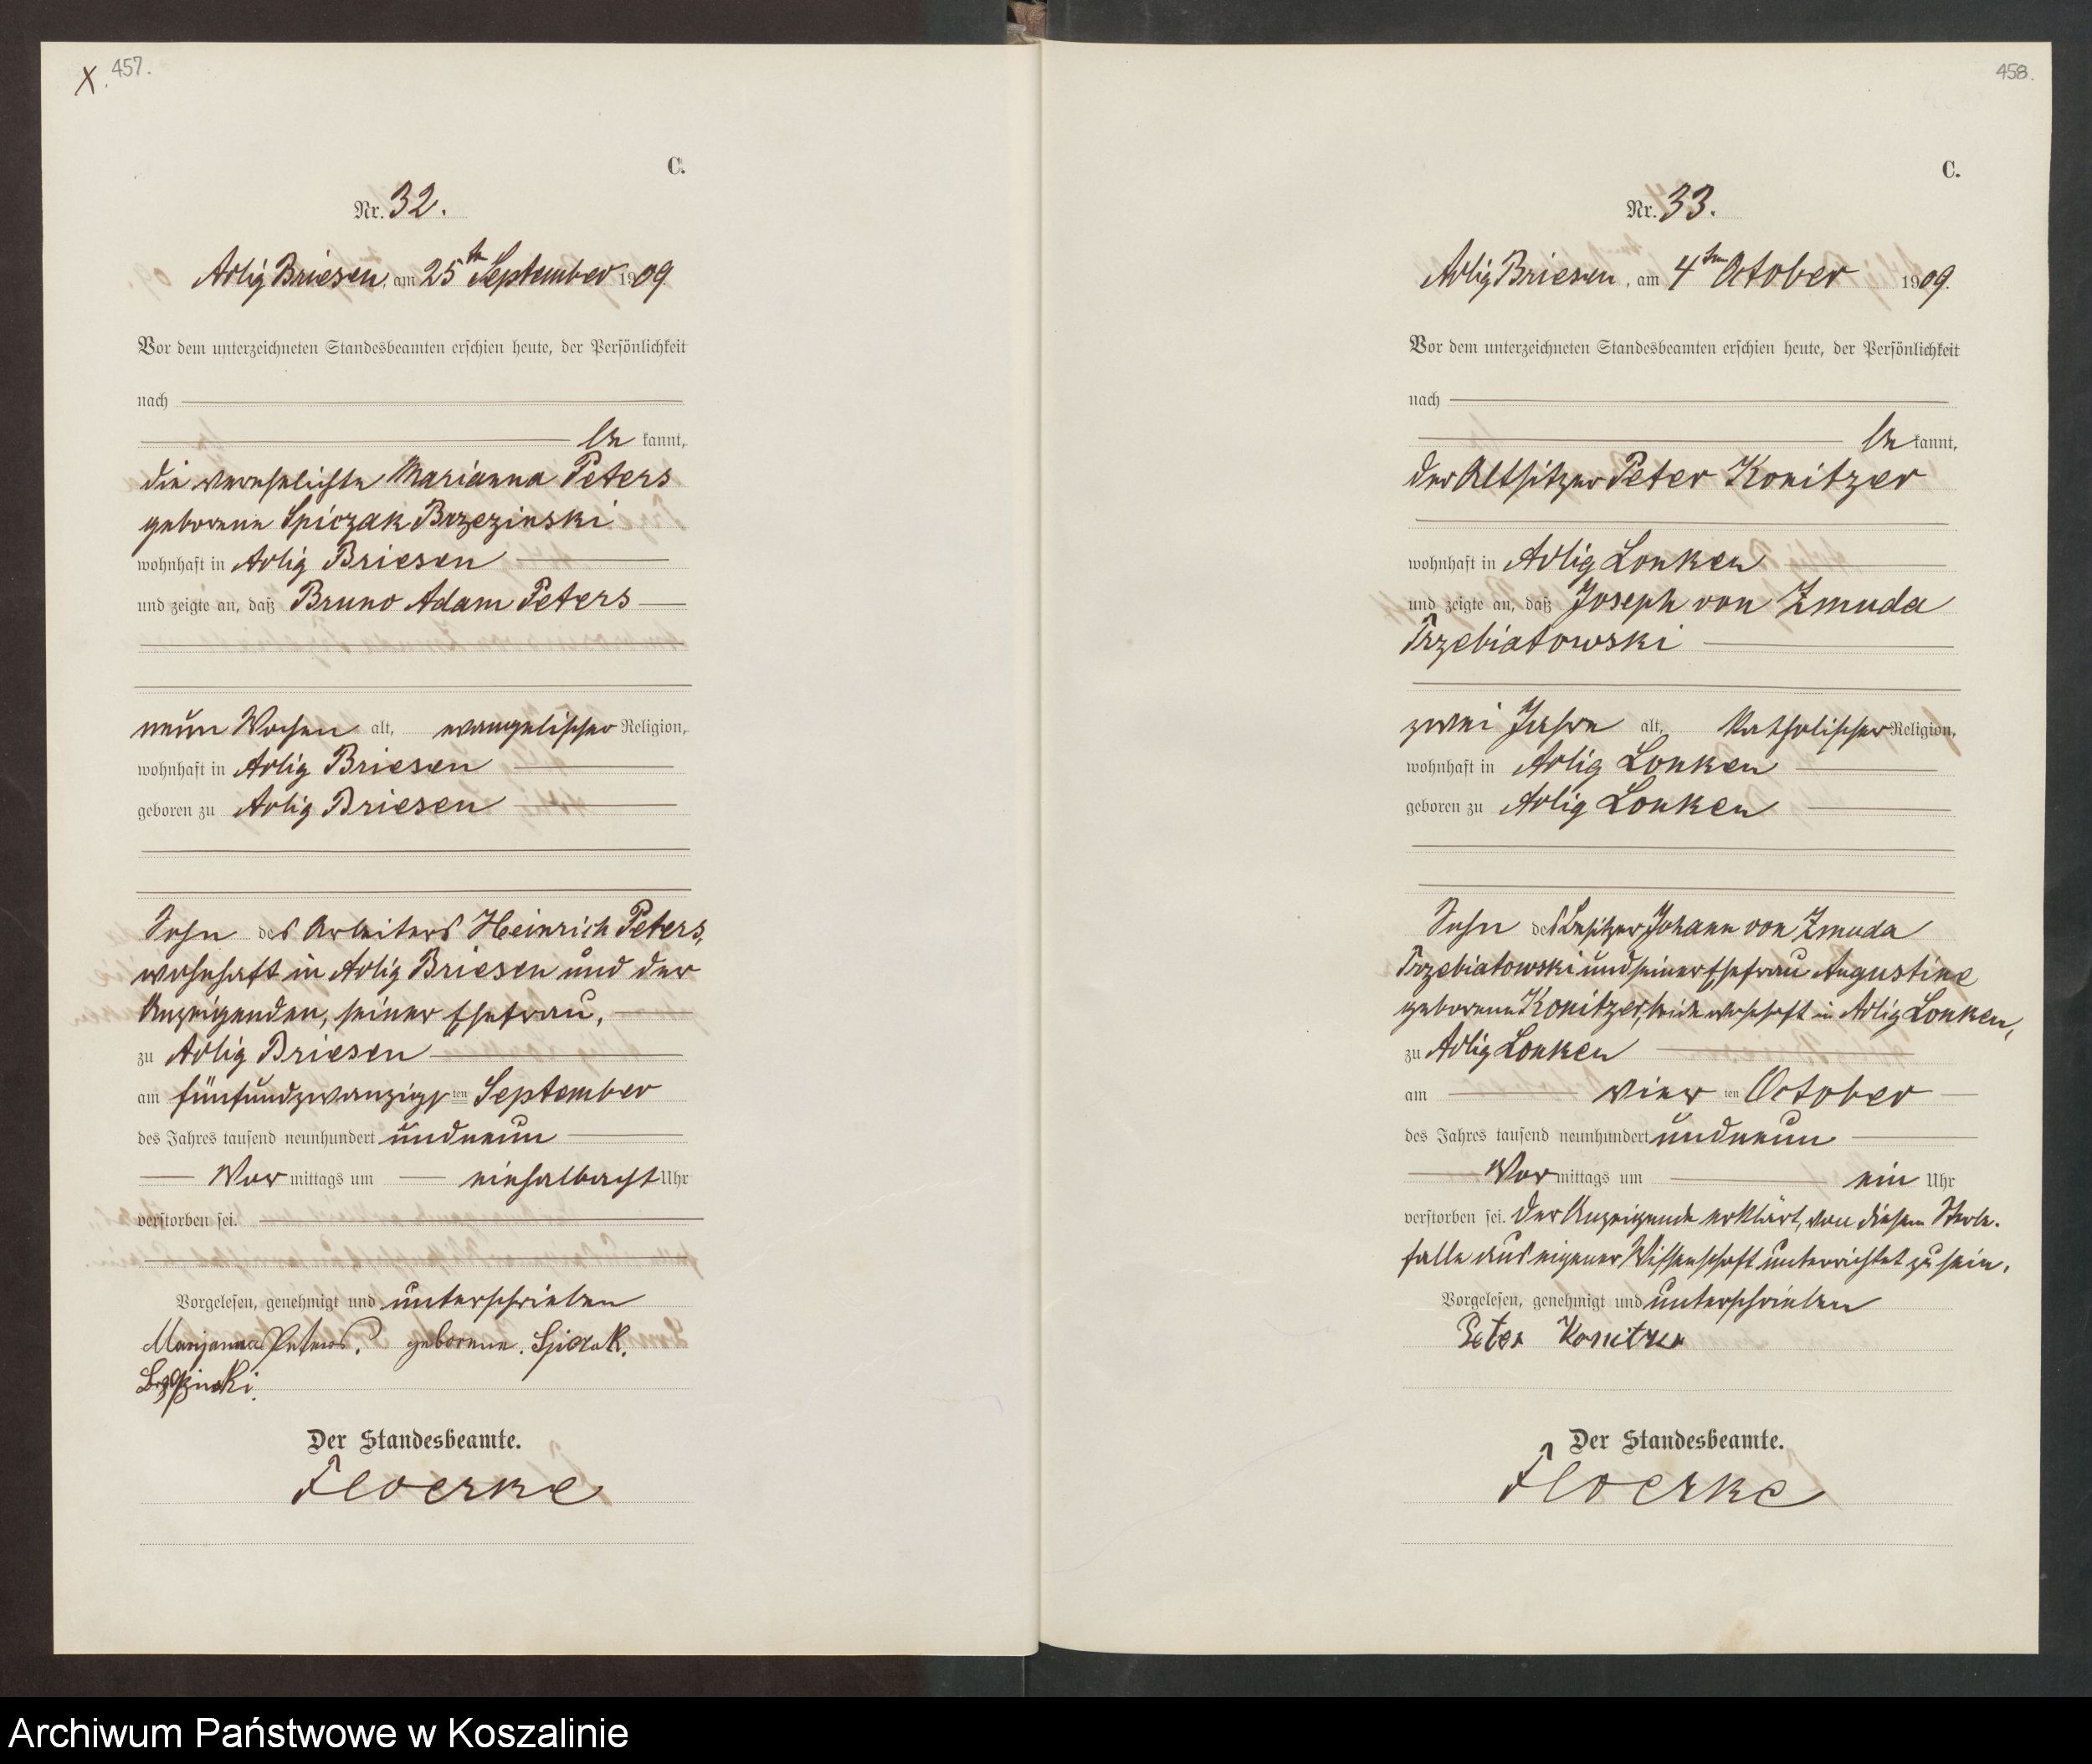 X. 457.
C.
Nr. 32.
Adlig Briesen, am 25ten September 1909
Vor dem unterzeichneten Standesbeamten erschien heute, der Persönlichkeit
nach
be kannt,
die verehelichte Marianna Peters
geborene Spiczak Brzezinski
wohnhaft in Adlig Briesen
und zeigte an, daß Bruno Adam Peters
neun Wochen alt, evangelischer Religion,
wohnhaft in Adlig Briesen
geboren zu Adlig Briesen
Sohn des Arbeiters Heinrich Peters,
wohnhaft in Adlig Briesen und der
Anzeigenden, seiner Ehefrau,
zu Adlig Briesen
am fünfundzwanzigsten September
des Jahres tausend neunhundert undneun
Vor mittags um einhalbacht Uhr
verstorben sei.
Vorgelesen, genehmigt und unterschrieben
Marjanna Peters. geborene. Spiczak.
Der Standesbeamte.
Floerke
458.
C.
Nr. 33.
Adlig Briesen, am 4ten October 1909.
Vor dem unterzeichneten Standesbeamten erschien heute, der Persönlichkeit
nach
be kannt,
der Altsitzer Peter Konitzer
wohnhaft in Adlig Lonken
und zeigte an, daß Joseph von Zmuda
Trzebiatowski
zwei Jahre alt, katholischer Religion,
wohnhaft in Adlig Lonken
geboren zu Adlig Lonken
Sohn des Besitzer Johann von Zmuda
Trzebiatowski und seiner Ehefrau Augustine
geborene Konitzer, beide wohnhaft in Adlig Lonken,
zu Adlig Lonken
am vier ten October
des Jahres tausend neunhundert undneun
Vor mittags um ein Uhr
verstorben sei. Der Anzeigende erklärt, von diesem Sterbe-
falle aus eigener Wissenschaft unterrichtet zu sein.
Vorgelesen, genehmigt und unterschrieben
Peter Konitzer
Der Standesbeamte.
Floerke
Archiwum Państwowe w Koszalinie